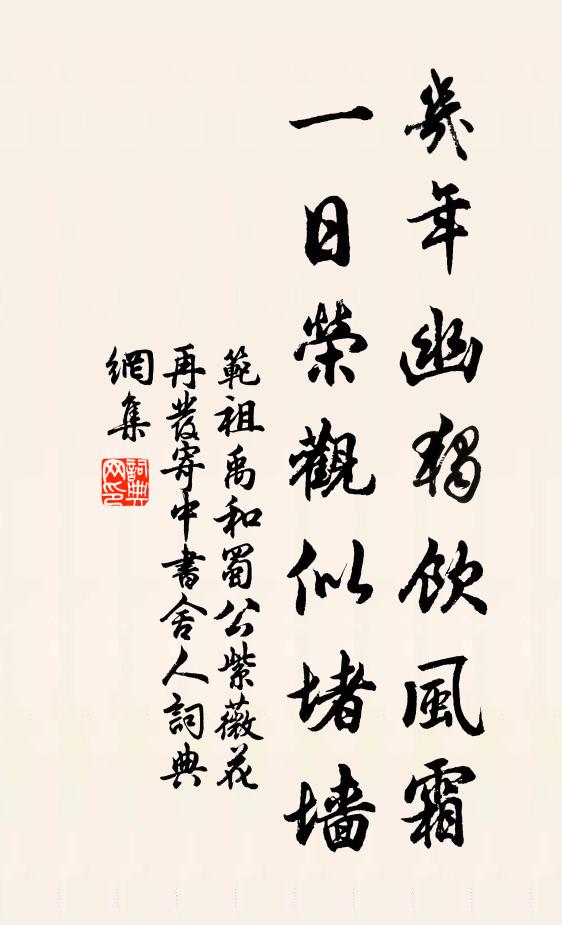 幾年幽獨飲風霜
一日榮觀似堵墻
範祖禹和蜀公紫薇花
再發寄中書舍人詞典
網集
詞典
网印